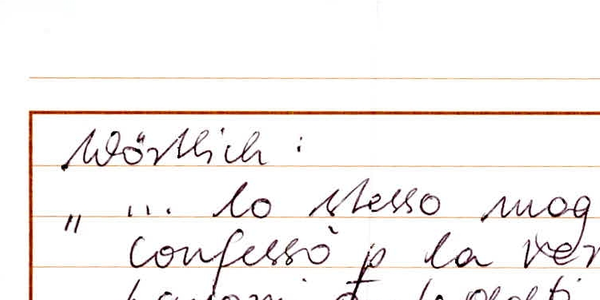 Wörtlich :
„ ... lo stesso mog
confessò p la ver